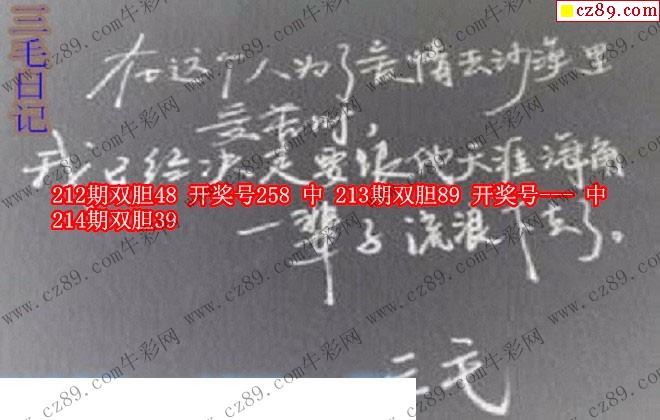 三毛日记
cz89.com
在这个人为了爱情去沙漠里
受苦时,
我已经决定要跟他天涯海角
212期双胆48 开奖号258 中 213期双胆89 开奖号--- 中
214期双胆39
一辈子流浪下去了。
三毛
www.cz89.com牛彩网